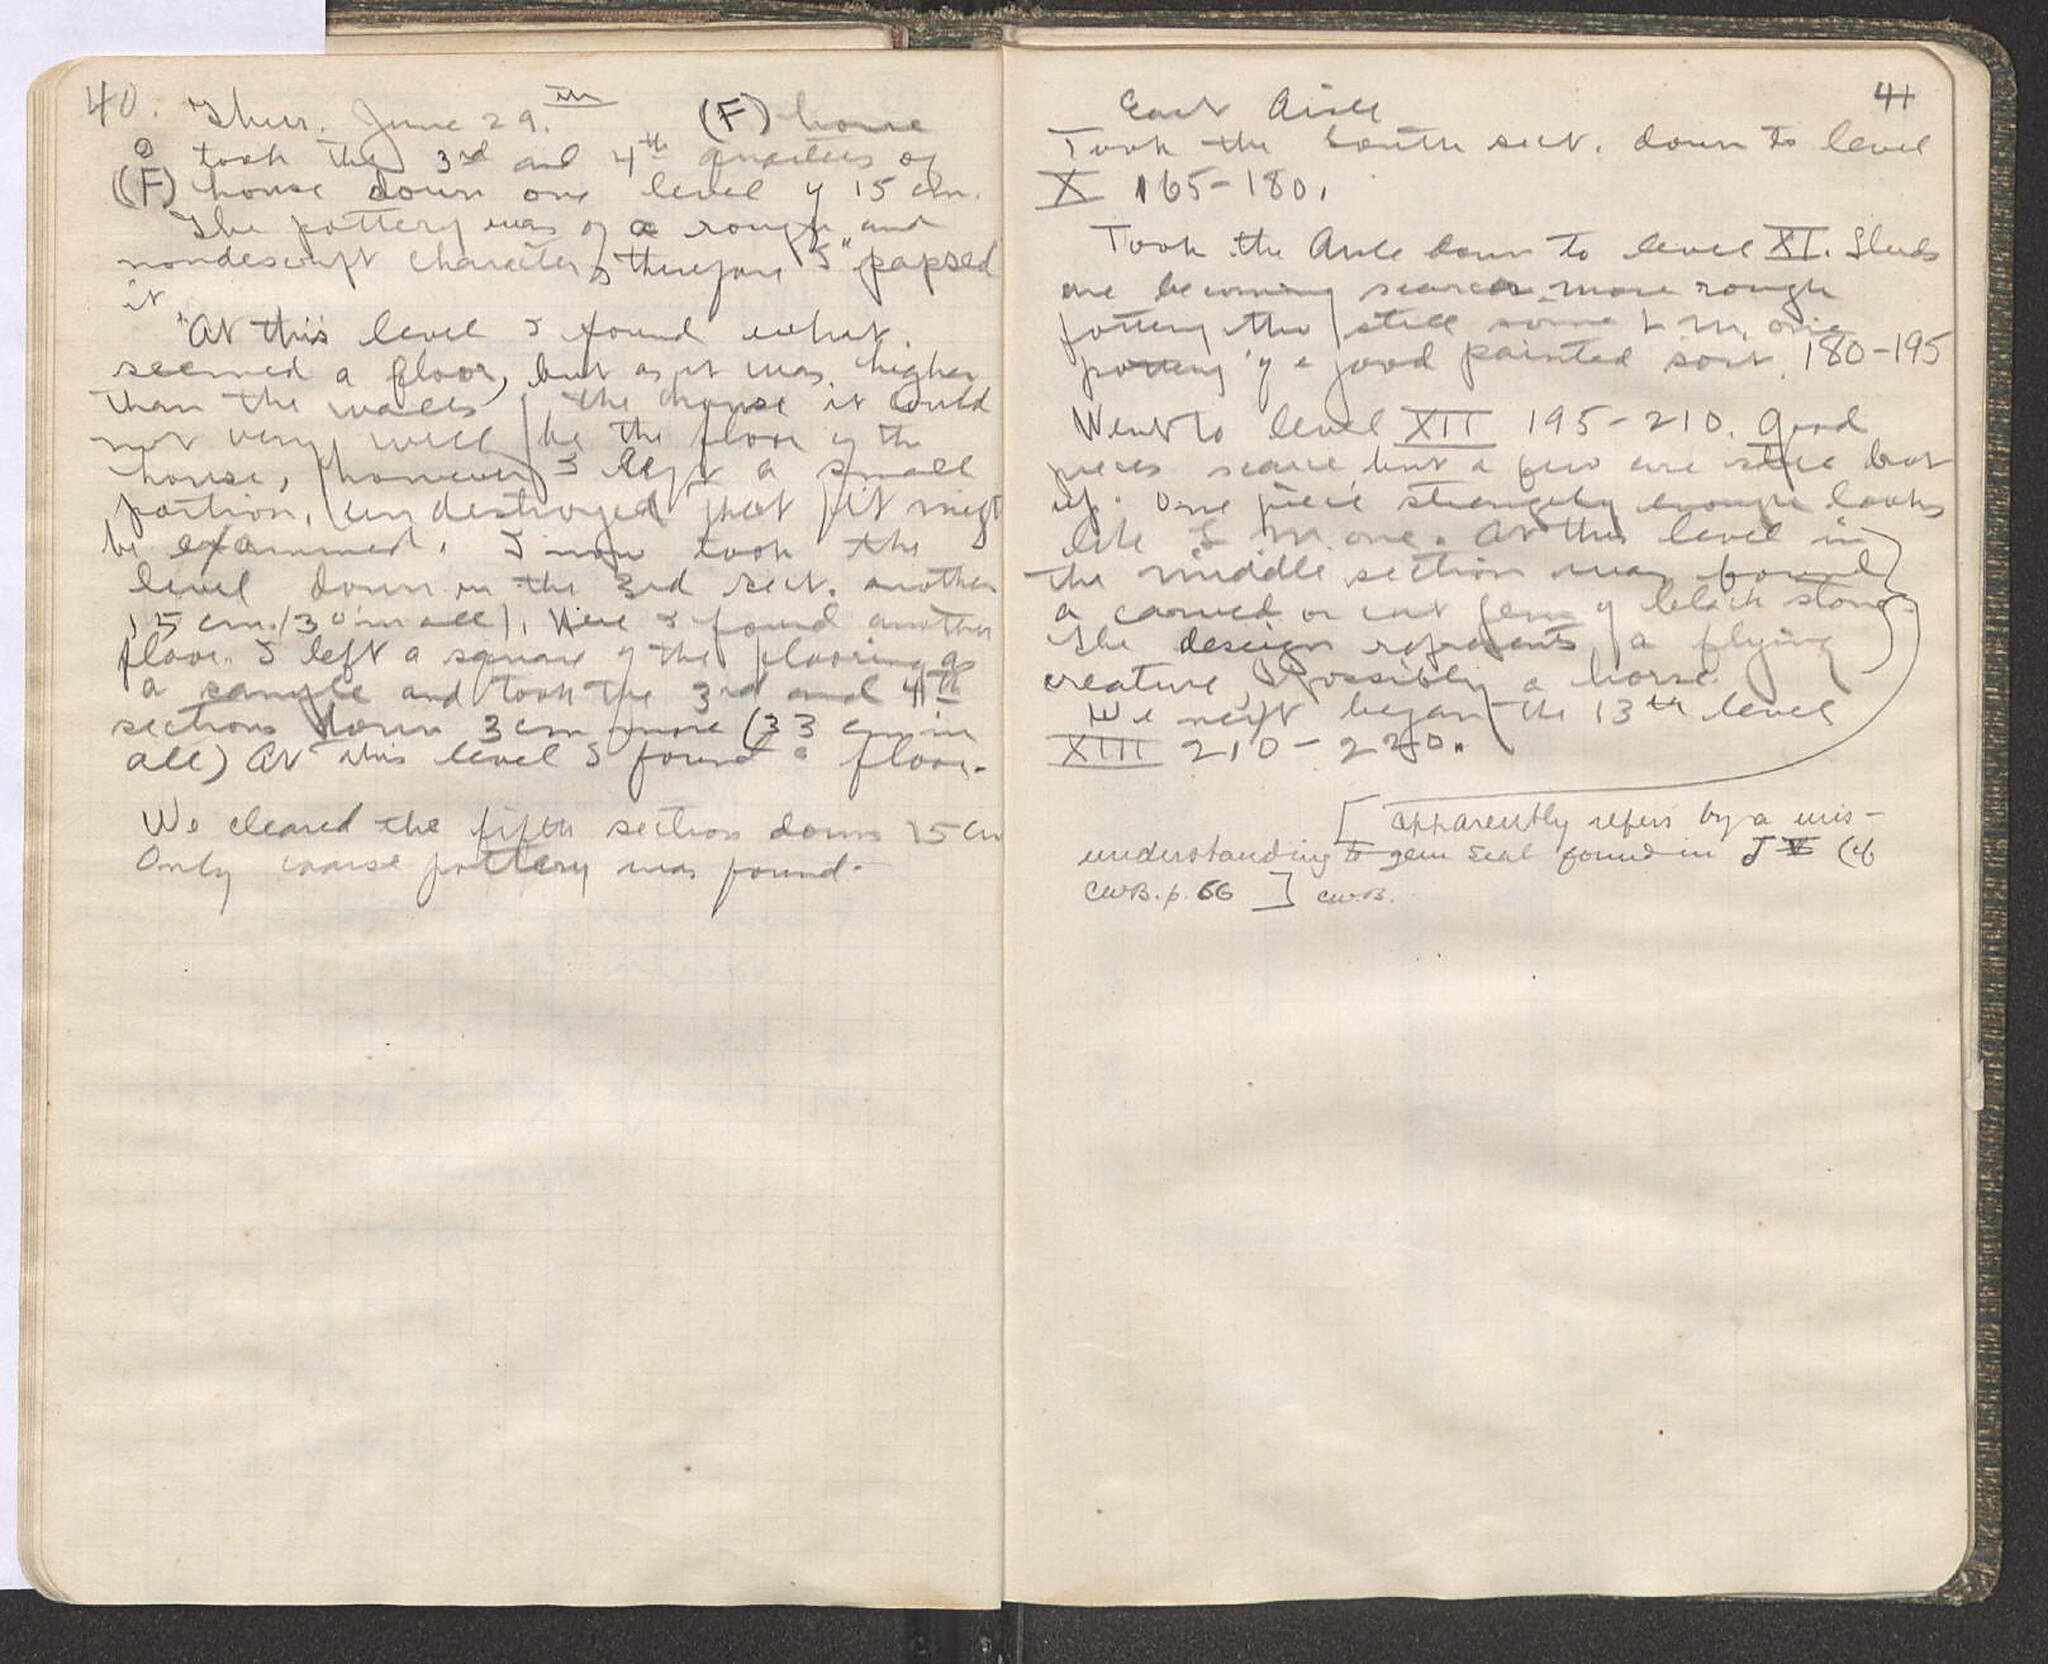 40.
Thur. June 29.th (F) house
I took the 3rd and 4th quarters of
(F) house down one level of 15 cm.
The pottery was of a rough and
nondescript character, therefore I "papsed
it"
At this level I found what
seemed a floor, but as it was higher
than the walls of the house it could
not very well be the floor of the
house, however I left a small
portion, undestroyed that it might
be examined. I now took the
level down in the 3rd sect. another
15 cm. (30 in all). Here I found another
floor. I left a square of the flooring as
a sample and took the 3rd and 4th
sections down 3 cm more (33 cm in
all) At this level I found a floor.
We cleared the fifth section down 15 cm
Only coarse pottery was found.
41
East Aisle
Took the South sect. down to level
X 165-180.
Took the Aisle down to level XI. Sherds
are becoming scarcer more rough
pottery tho still some L. M. one
pottery of a good painted sort. 180-195
Went to level XII 195-210. Good
pieces scarce but a few are still but
up. One piece strangely enough looks
like L M. one. At this level in
the middle section was found
a carved or cut gem of black stone.
The design represents a flying
creature, possibly a horse.
We next began the 13th level
XIII 210-220.
[apparently refers by a mis-
understanding to gem seal found in J V (cf
CWB. p. 66] CWB.